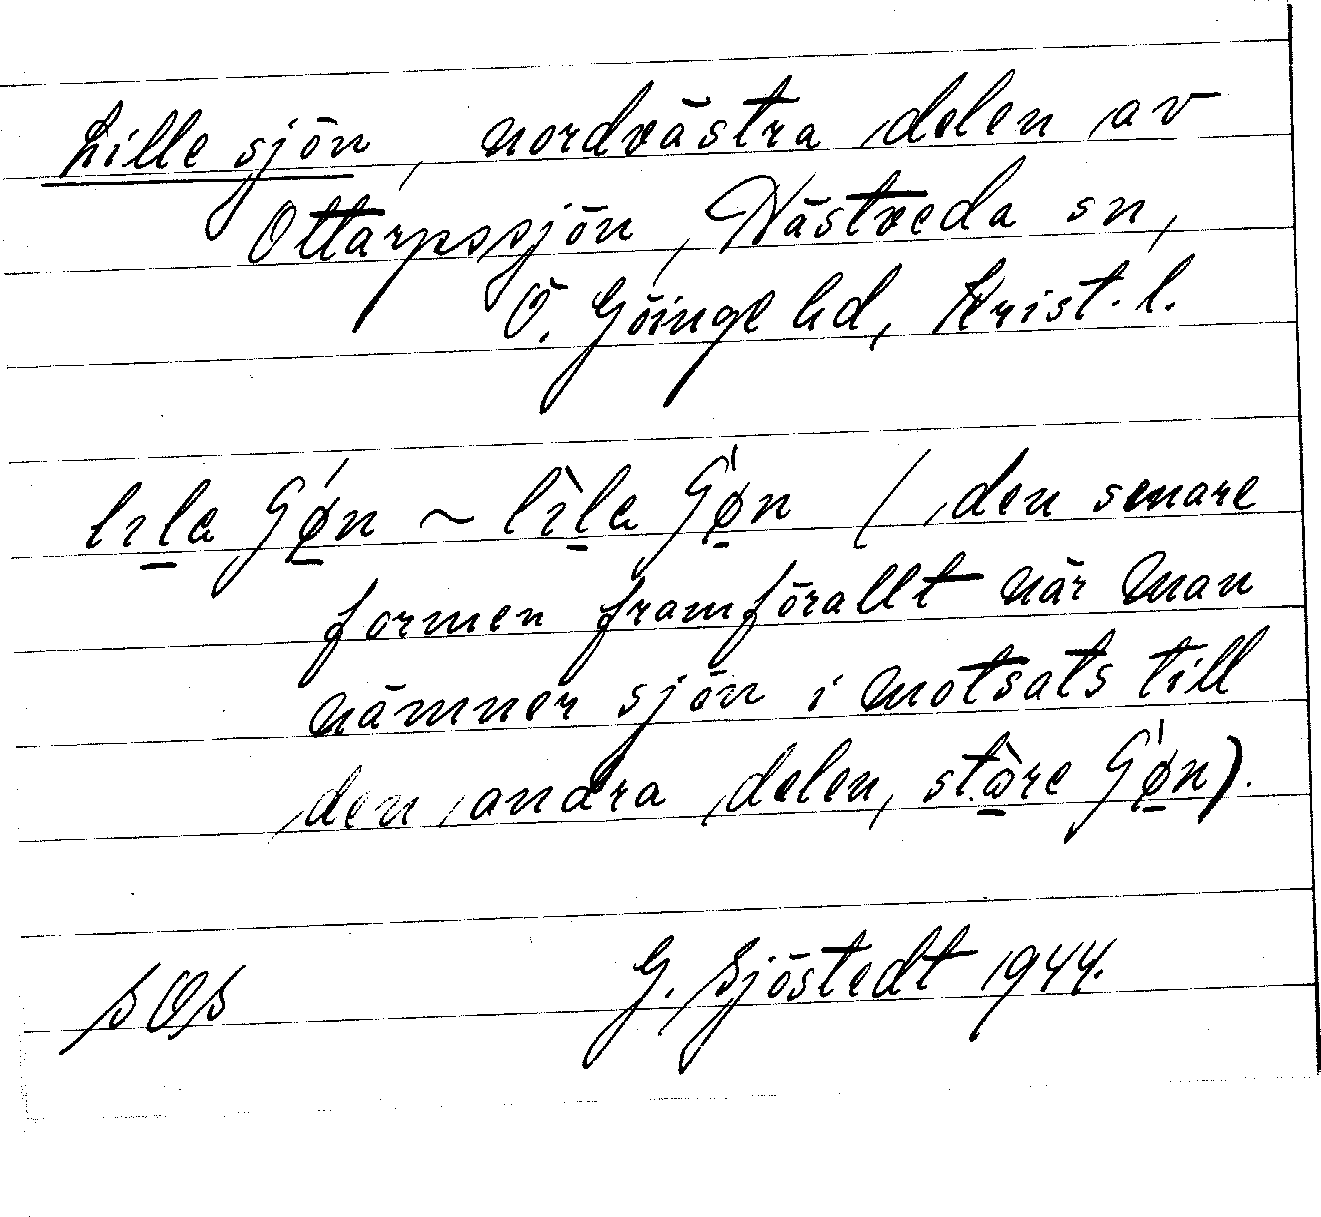 Lille sjön, nordvästra delen av
Ottarpssjön, Hästveda sn,
Ö. Göinge hd, Krist. l.
lıl̠a ʃǿ̠n ~ lı̀l̠a ʃǿ̠n (den senare
formen framförallt när man
nämner sjön i motsats till
den andra delen, stø̠̀re ʃǿ̠n).
SOS G. Sjöstedt 1944.